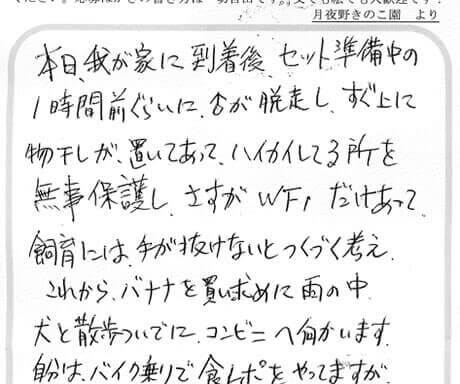 月夜野きのこ園 より
本日、我が家に到着後、セット準備中の
1時間前ぐらいに、♂が脱走し、すぐ上に
物干しが、置いてあって、ハイカイしてる所を
無事保護し、さすがWF1だけあって、
飼育には、手が抜けないとつくづく考え、
これから、バナナを買い求めに雨の中、
犬と散歩ついでに、コンビニへ向かいます。
自分は、バイク乗りで食レポをやってますが、